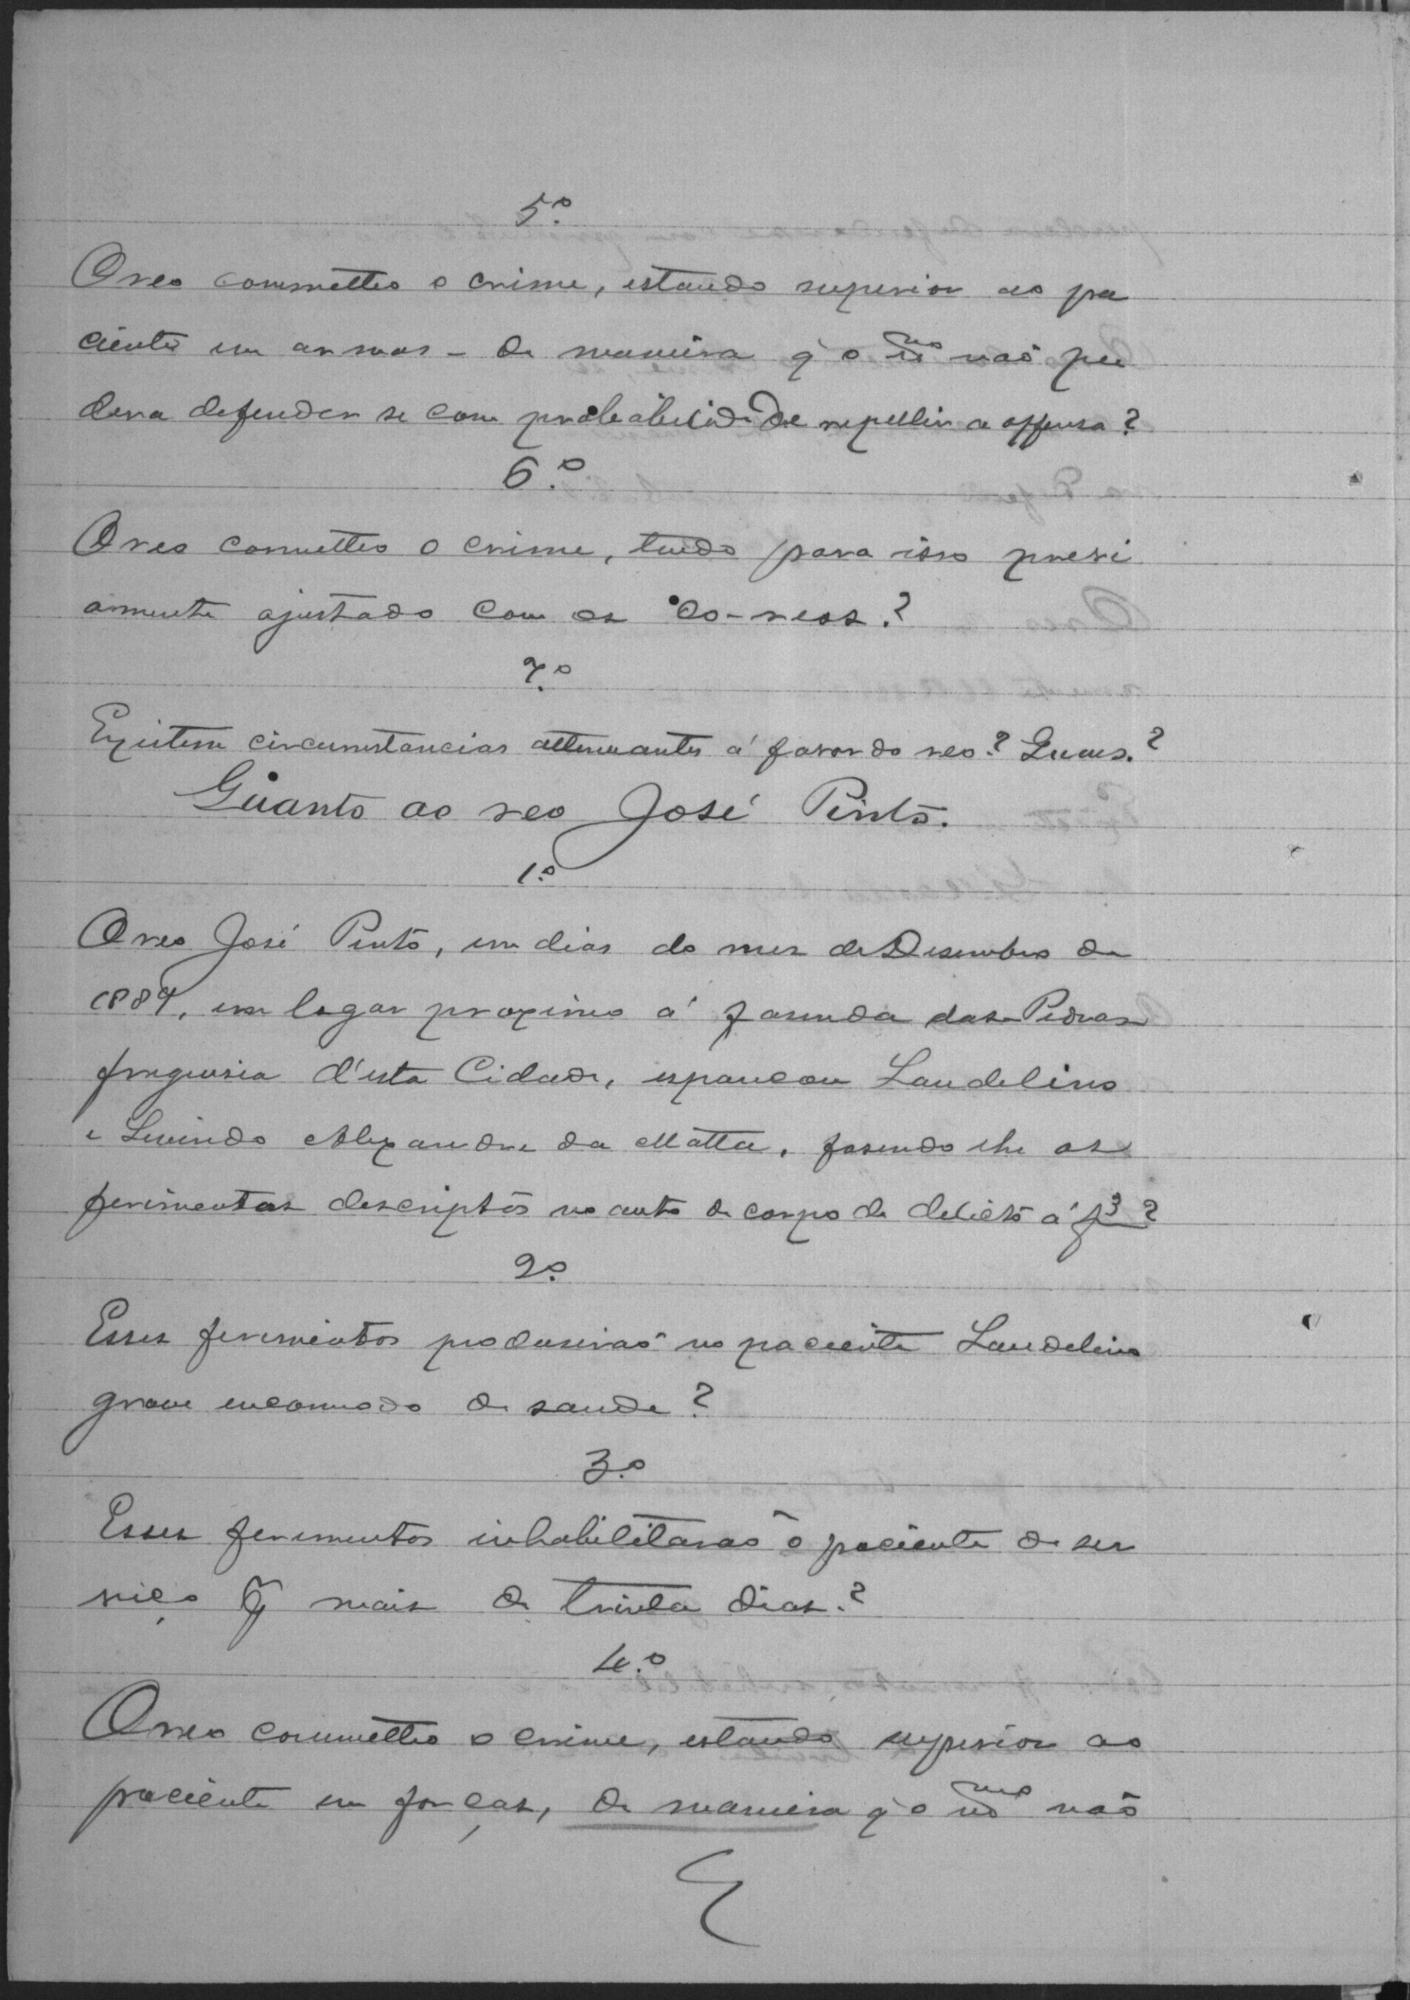 5.º
O reo commetteo o crime, estando superior ao pa
ciente em armas - de maneira q' o mmo naõ pu
dera defender se com probabilidade de repellir a offensa?
6.º
O reo cometteo o crime, tendo para isso previ
amente ajustado com os co-reos.?
7.º
Existem circumstancias attenuantes á favor do reo? Quaes.?
Quanto ao reo José Pinto.
1.º
O reo José Pinto, em dias do mez de Desembro de
1889, em logar proximo á fasenda das Pedras
freguesia d'esta Cidade, espancou Laudelino
e Levindo Alexandre da Matta, fasendo lhe os
ferimentos descriptos no auto de corpo de delicto á f 3?
2.º
Esses ferimentos produsiraõ no paciente Laudelino
grave encommodo de saude?
3.º
Esses ferimentos inhabilitaraõ o paciente de ser
viço p mais de trinta dias.?
4.º
O reo commetteo o crime, estando superior ao
paciente em forças, de maneira q' o mmo naõ